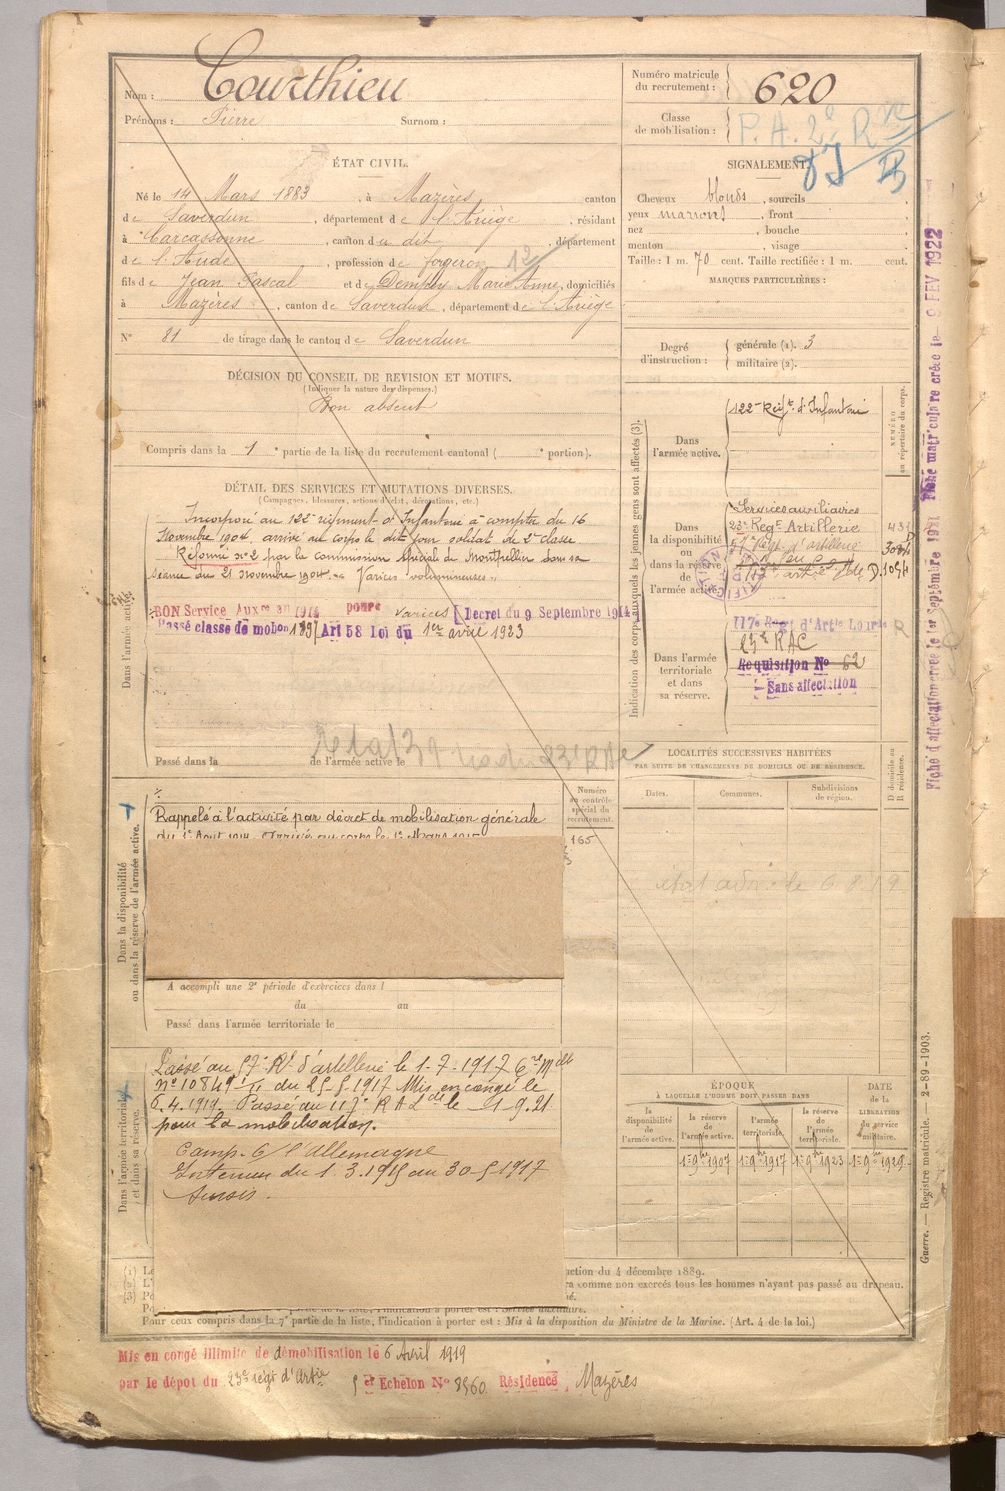 Nom : Courthieu
Prénoms : Pierre Surnom :
Numéro matricule du recrutement : 620
Classe de mobilisation : P. A. 2° R
ÉTAT CIVIL.
Né le 14 Mars 1883 à Mazères canton
de Saverdun, département de l'Ariège, résidant
à Carcassonne, canton du dit, département
de l'Aude, profession de forgeron 12
fils de Jean Pascal et de Dempky Marie Anne, domiciliés
à Mazères, canton de Saverdun, département de l'Ariège
N° 81 de tirage dans le canton de Saverdun
SIGNALEMENT.
Cheveux blonds, sourcils
yeux marrons, front
nez, bouche
menton, visage
Taille : 1 m. 70 cent. Taille rectifiée : 1 m. cent.
MARQUES PARTICULIÈRES :
Degré d'instruction : générale (1). 3
militaire (2).
DÉCISION DU CONSEIL DE REVISION ET MOTIFS.
(Indiquer la nature des dispenses.)
Bon absent
Compris dans la 1e partie de la liste du recrutement cantonal ( e portion).
DÉTAIL DES SERVICES ET MUTATIONS DIVERSES.
(Campagnes, blessures, actions d'éclat, décorations, etc.)
Dans l'armée active.
Incorporé au 122e régiment d'Infanterie à compter du 16
Novembre 1904, arrivé au corps le dit jour soldat de 2e classe
Réformé n° 2 par la commission spéciale de Montpellier dans sa
séance du 21 novembre 1904. "Varices volumineuses"
BON Service Auxre 1914 pour varices [Décret du 9 Septembre 1914]
Passé classe de mobon Art 58 Loi du 1er avril 1923
Passé dans la de l'armée active le
Indication des corps auxquels les jeunes gens sont affectés (3).
NUMÉRO au répertoire du corps.
Dans l'armée active.
122e Régt d'Infanterie
Dans la disponibilité ou dans la réserve de l'armée active.
Services auxiliaires
23e Régt Artillerie
57e Régt d'artillerie
D.1084
Dans l'armée territoriale et dans sa réserve.
117e Régt d'Artie Lourde
23e RAC
Requisition N° 62
Sans affectation
Fiche d'affectation créée le 1er Septembre 1921 Fiche matriculaire créée le 9 FEV 1922
LOCALITÉS SUCCESSIVES HABITÉES
PAR SUITE DE CHANGEMENTS DE DOMICILE OU DE RÉSIDENCE.
D domicile ou R résidence.
Dates. Communes. Subdivisions de région.
Numéro au contrôle spécial du recrutement.
165
Dans la disponibilité ou dans la réserve de l'armée active.
Rappelé à l'activité par décret de mobilisation générale
du 1er Août 1914. Arrivé au corps le 1er Mars 1915
A accompli une 2e période d'exercices dans l
du au
Passé dans l'armée territoriale le
Dans l'armée territoriale et dans sa réserve.
Passé au 57e Rt d'artillerie le 1-7-1917
n° 10849 du 25 5 1917 Mis en congé le
6.4.1919. Passé au 117e R A Lde le 1 9.21
pour la mobilisation.
Camp. c/ l'Allemagne
Intérieur du 1.3.1915 au 30 5 1917
ÉPOQUE
À LAQUELLE L'HOMME DOIT PASSER DANS
la disponibilité de l'armée active.
la réserve de l'armée active.
l'armée territoriale.
la réserve de l'armée territoriale.
DATE de la LIBÉRATION du service militaire.
1er 9bre 1907 1er 9bre 1917 1er 9bre 1923 1er 9bre 1929
(1) Le
(2) L'
(3) Po
ction du 4 décembre 1889.
ra comme non exercés tous les hommes n'ayant pas passé au drapeau.
Pour ceux compris dans la 7e partie de la liste, l'indication à porter est : Mis à la disposition du Ministre de la Marine. (Art. 4 de la loi.)
Guerre. — Registre matricule. — 2-89-1903.
Mis en congé illimité de démobilisation le 6 Avril 1919
par le dépot du 23e régt d'Artie 5e Echelon N° 8960 Résidence Mazères